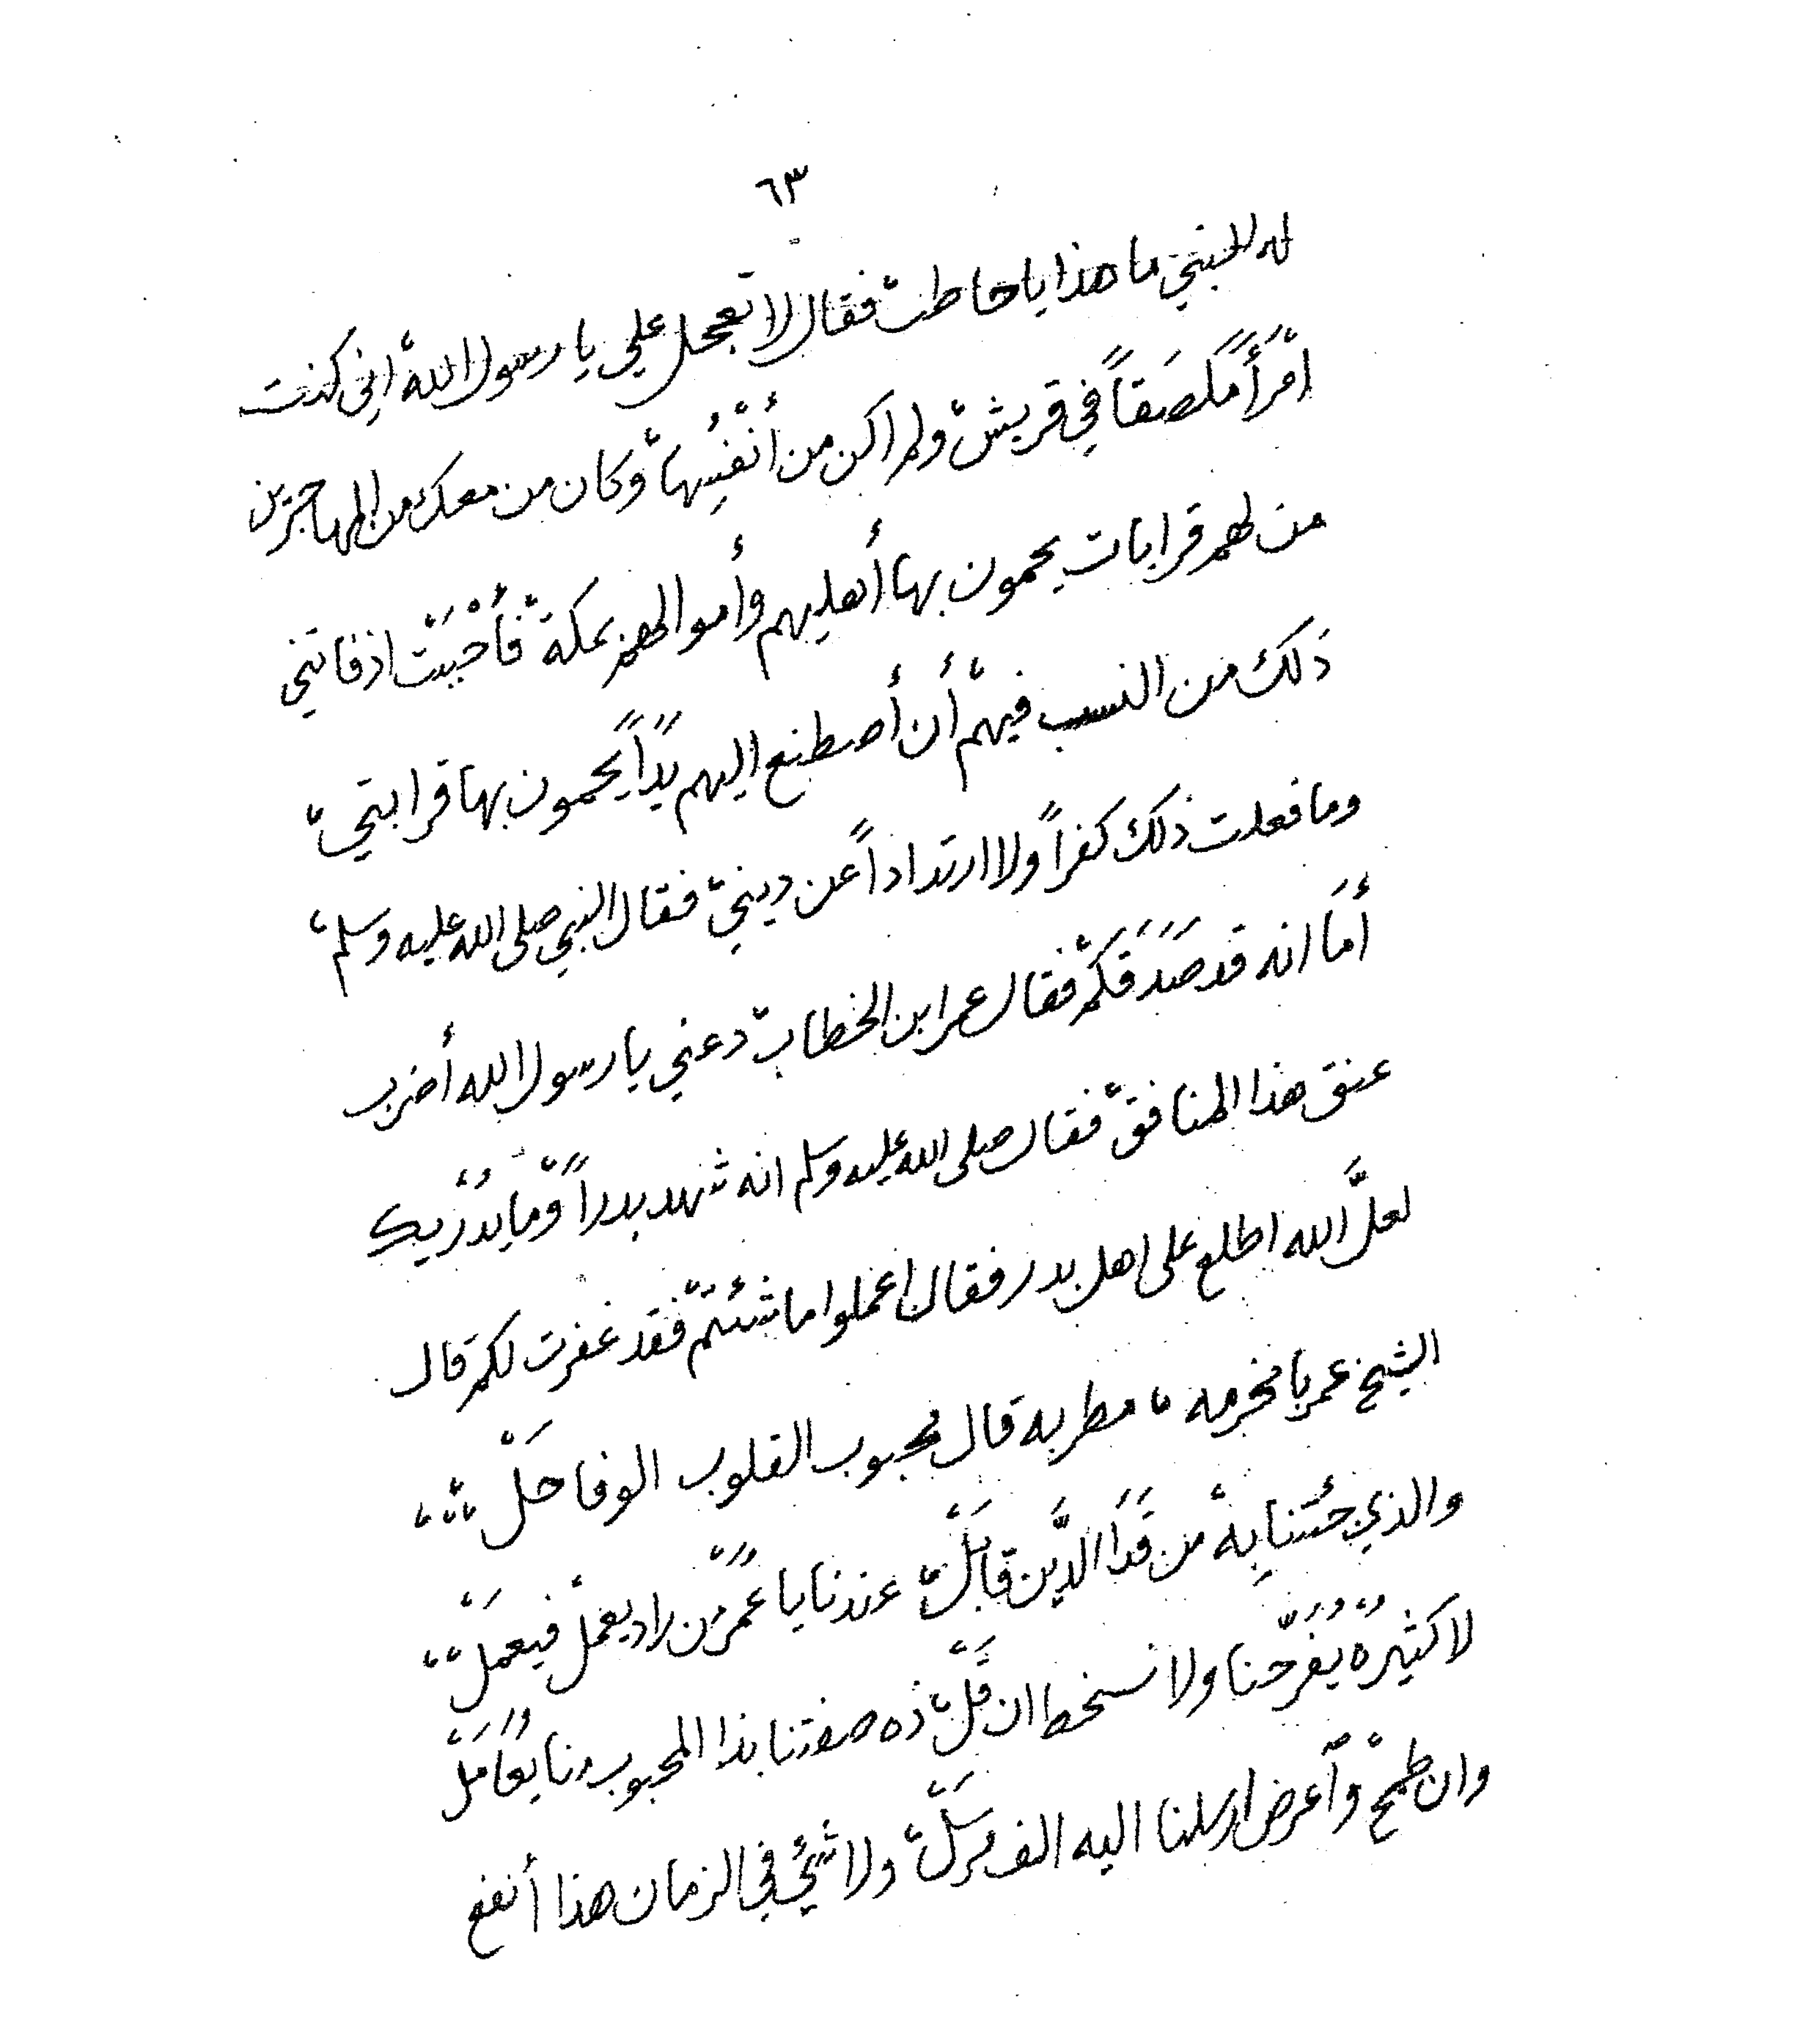 ٦٣
له النبي ما هذا يا حاطب فقال لا تعجل علي يا رسول الله اني كنت
امْرَأً مُلصَقاً في قريش ولم اكن من أنْفُسِها وكان من معك من المهاجرين
من لهم قرابات يحمون بها أهليهم وأموالهم بمكة فأحْبَبْت اذ فاتني
ذلك من النسب فيهم أن أصطنع اليهم يَدًا يحمون بها قرابتي
وما فعلت ذلك كفراً ولا ارتداداً عن ديني فقال النبي صلى الله عليه وسلم
أمَا انه قد صَدَقَكم فقال عمر ابن الخطاب دعني يا رسول الله أضرب
عنق هذا المنافق فقال صلى الله عليه وسلم انه شهد بدراً ومَا يُدْريك
لعلَّ الله اطلع على اهل بدر فقال اعملوا ما شئتم فقد غفرت لكم قال
الشيخ عمر بامخرمه مطربه قال محبوب القلوب الوفا حَلْ
والذي جئتنا بِهْ من قَدَا الدَّين قابَلْ عندنا يا عُمَر من راد يعمل فيعمَلْ
لا كثيرُهْ يُفَرّحنا ولا نسخط ان قَلّ ذه صفتنا بذا المحبوب منا يُعَامَلْ
وان طمحْ وأعرض ارسلنا اليه الف مرسَلْ ولا شيْ في الزمان هذا أنفع